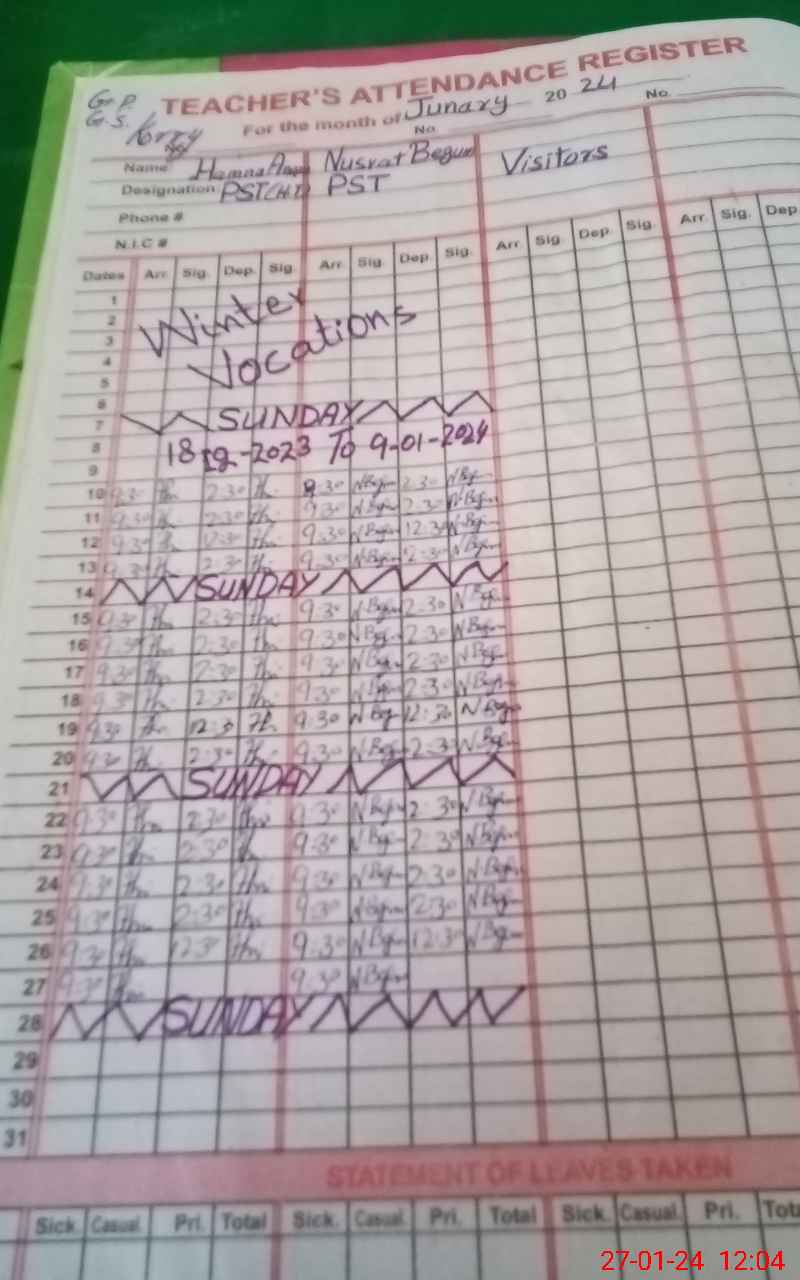 G.P.
G.S. TEACHER'S ATTENDANCE REGISTER
For the month of Junary 20 24 No.
No
Name Hamna Nusrat Begum Visitors
Designation PST(H.T) PST
Phone #
N.I.C #
Dates Arr. Sig. Dep. Sig. Arr. Sig. Dep. Sig. Arr. Sig. Dep. Sig. Arr. Sig. Dep
1
2 Winter
3
4 Vocations
5
6
7 SUNDAY
8 18-12-2023 To 9-01-2024
9
10 9:30 2:30 9:30 N Begum 2:30 N Begum
11 9:30 2:30 9:30 N Begum 2:30 N Begum
12 9:30 12:30 9:30 N Begum 12:30 N Begum
13 9:30 2:30 9:30 N Begum 2:30 N Begum
14 SUNDAY
15 9:30 2:30 9:30 N Begum 2:30 N Begum
16 9:30 2:30 9:30 N Begum 2:30 N Begum
17 9:30 2:30 9:30 N Begum 2:30 N Begum
18 9:30 2:30 9:30 N Begum 2:30 N Begum
19 9:30 12:30 9:30 N Begum 12:30 N Begum
20 9:30 2:30 9:30 N Begum 2:30 N Begum
21 SUNDAY
22 9:30 2:30 9:30 N Begum 2:30 N Begum
23 9:30 2:30 9:30 N Begum 2:30 N Begum
24 9:30 2:30 9:30 N Begum 2:30 N Begum
25 9:30 2:30 9:30 N Begum 2:30 N Begum
26 9:30 12:30 9:30 N Begum 12:30 N Begum
27 9:30 9:30 N Begum
28 SUNDAY
29
30
31
STATEMENT OF LEAVES TAKEN
Sick. Casual. Pri. Total Sick. Casual. Pri. Total Sick. Casual. Pri. Tot
27-01-24 12:04